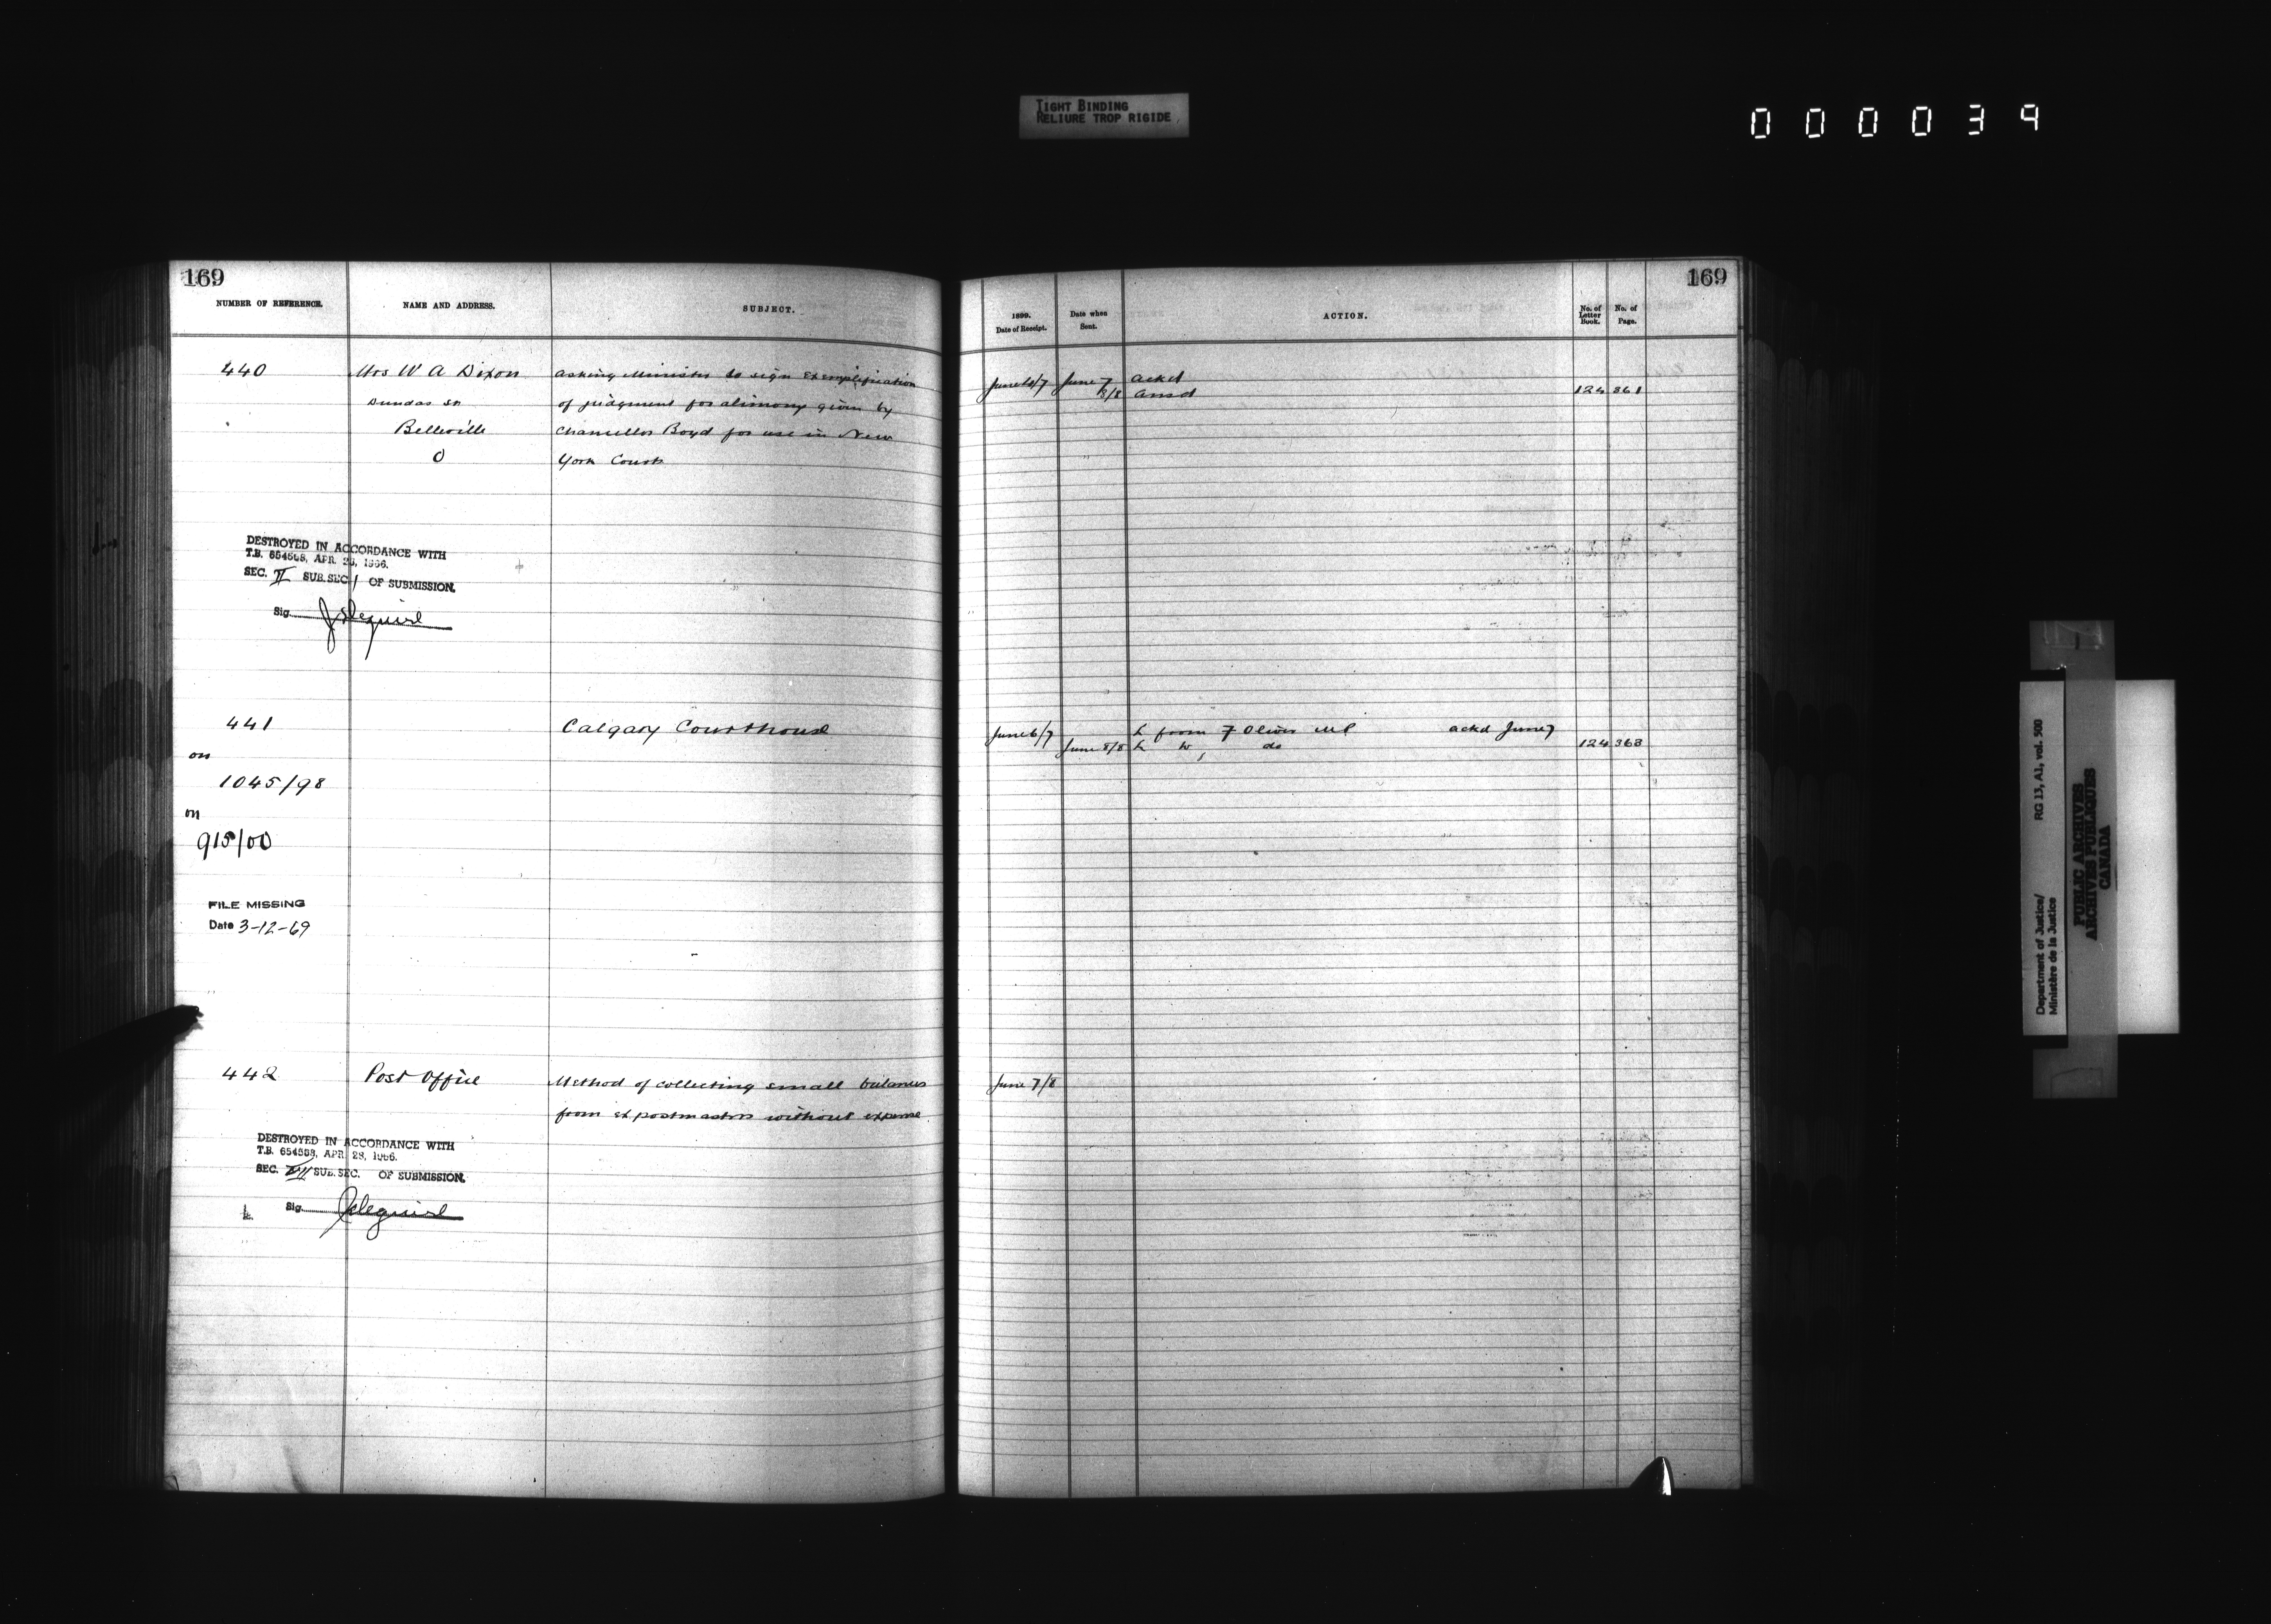 TIGHT BINDING
RELIURE TROP RIGIDE
000039
169
NUMBER OF REFERENCE.
NAME AND ADDRESS.
SUBJECT.
440
Mrs W A Dixon
asking Minister to sign exemplification
Dundas St
of judgment for alimony given by
Belleville
Chancellor Boyd for use in New
O
York Courts
DESTROYED IN ACCORDANCE WITH
T.B. 654558, APR. 28, 1966.
SEC. II SUB.SEC. 1 OF SUBMISSION.
Sig.
441
Calgary Courthouse
on
1045/98
on
915/00
FILE MISSING
Date 3-12-69
442
Post Office
Method of collecting small balances
from ex postmasters without expense
DESTROYED IN ACCORDANCE WITH
T.B. 654558, APR. 28, 1966.
SEC. SUB.SEC. OF SUBMISSION.
Sig.
169
1899.
Date of Receipt.
Date when
Sent.
ACTION.
No. of
Letter
Book.
No. of
Page.
June 6/7 June 7 ackd
8/8 ansd 124 361
June 6/7 L from F Oliver MP ackd June 7
June 8/8 L to , do 124 363
June 7/8
Department of Justice/
Ministère de la Justice
RG 13, A1, vol. 500
PUBLIC ARCHIVES
ARCHIVES PUBLIQUES
CANADA